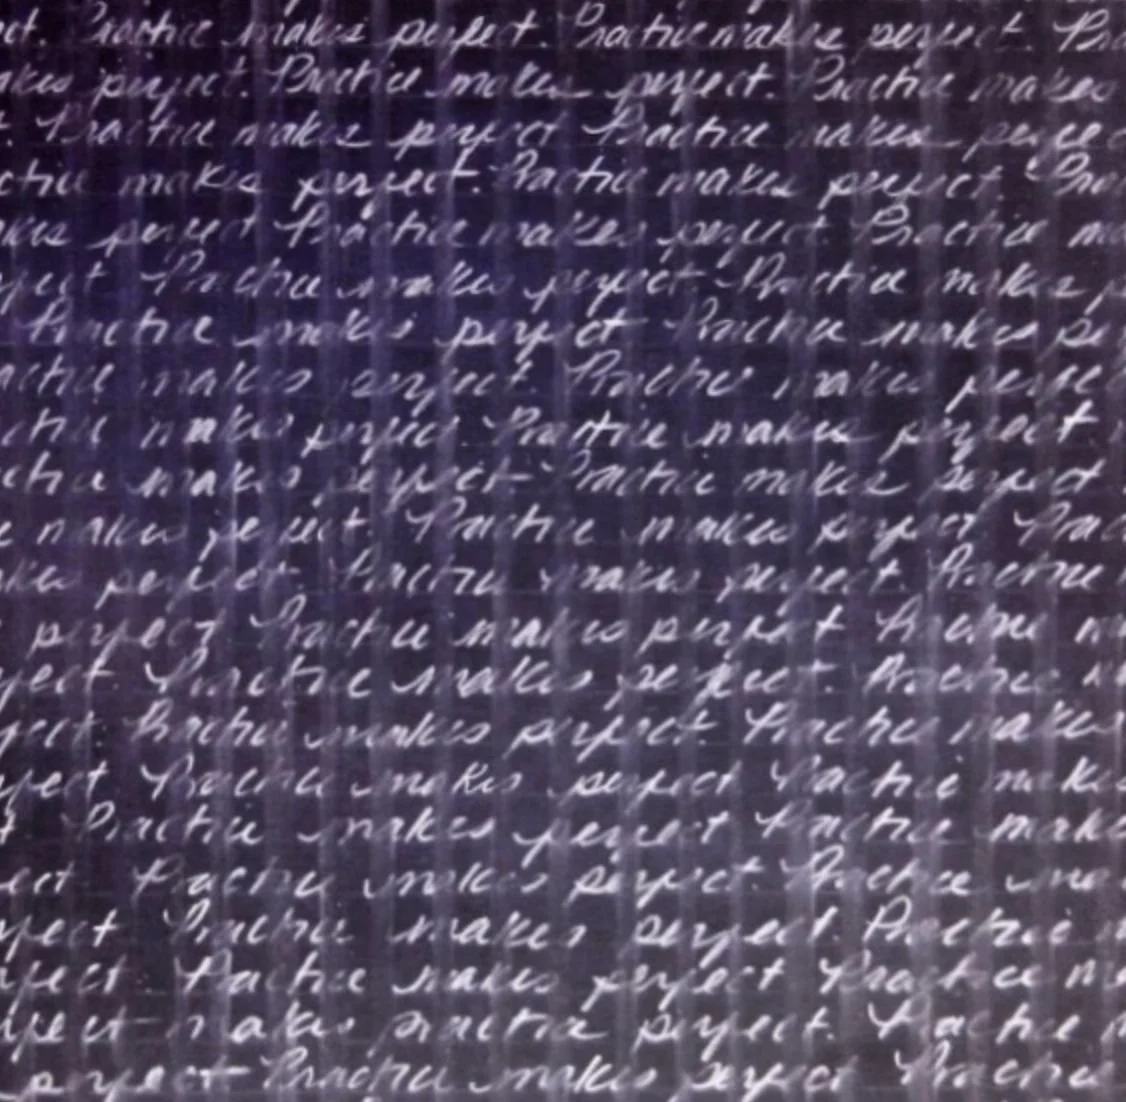 ct. Practice makes perfect. Practice makes perfect. Pra
akes perfect. Practice makes perfect. Practice makes
. Practice makes perfect Practice makes perfec
ctice makes perfect. Practice makes perfect. Pra
akes perfect Practice makes perfect. Practice ma
rfect Practice makes perfect. Practice makes p
Practice makes perfect Practice makes pe
actice makes perfect. Practice makes perfec
ctice makes perfect. Practice makes perfect
ctice makes perfect. Practice makes perfect
e makes perfect. Practice makes perfect Prac
akes perfect. Practice makes perfect. Practice
perfect Practice makes perfect Practice m
fect. Practice makes perfect. Practice m
fect. Practice makes perfect. Practice makes
fect Practice makes perfect Practice makes
t Practice makes perfect Practice make
ect Practice makes perfect. Practice ma
rfect Practice makes perfect. Practice m
rfect Practice makes perfect Practice ma
rfect makes practice perfect. Practice m
perfect Practice makes perfect Practice